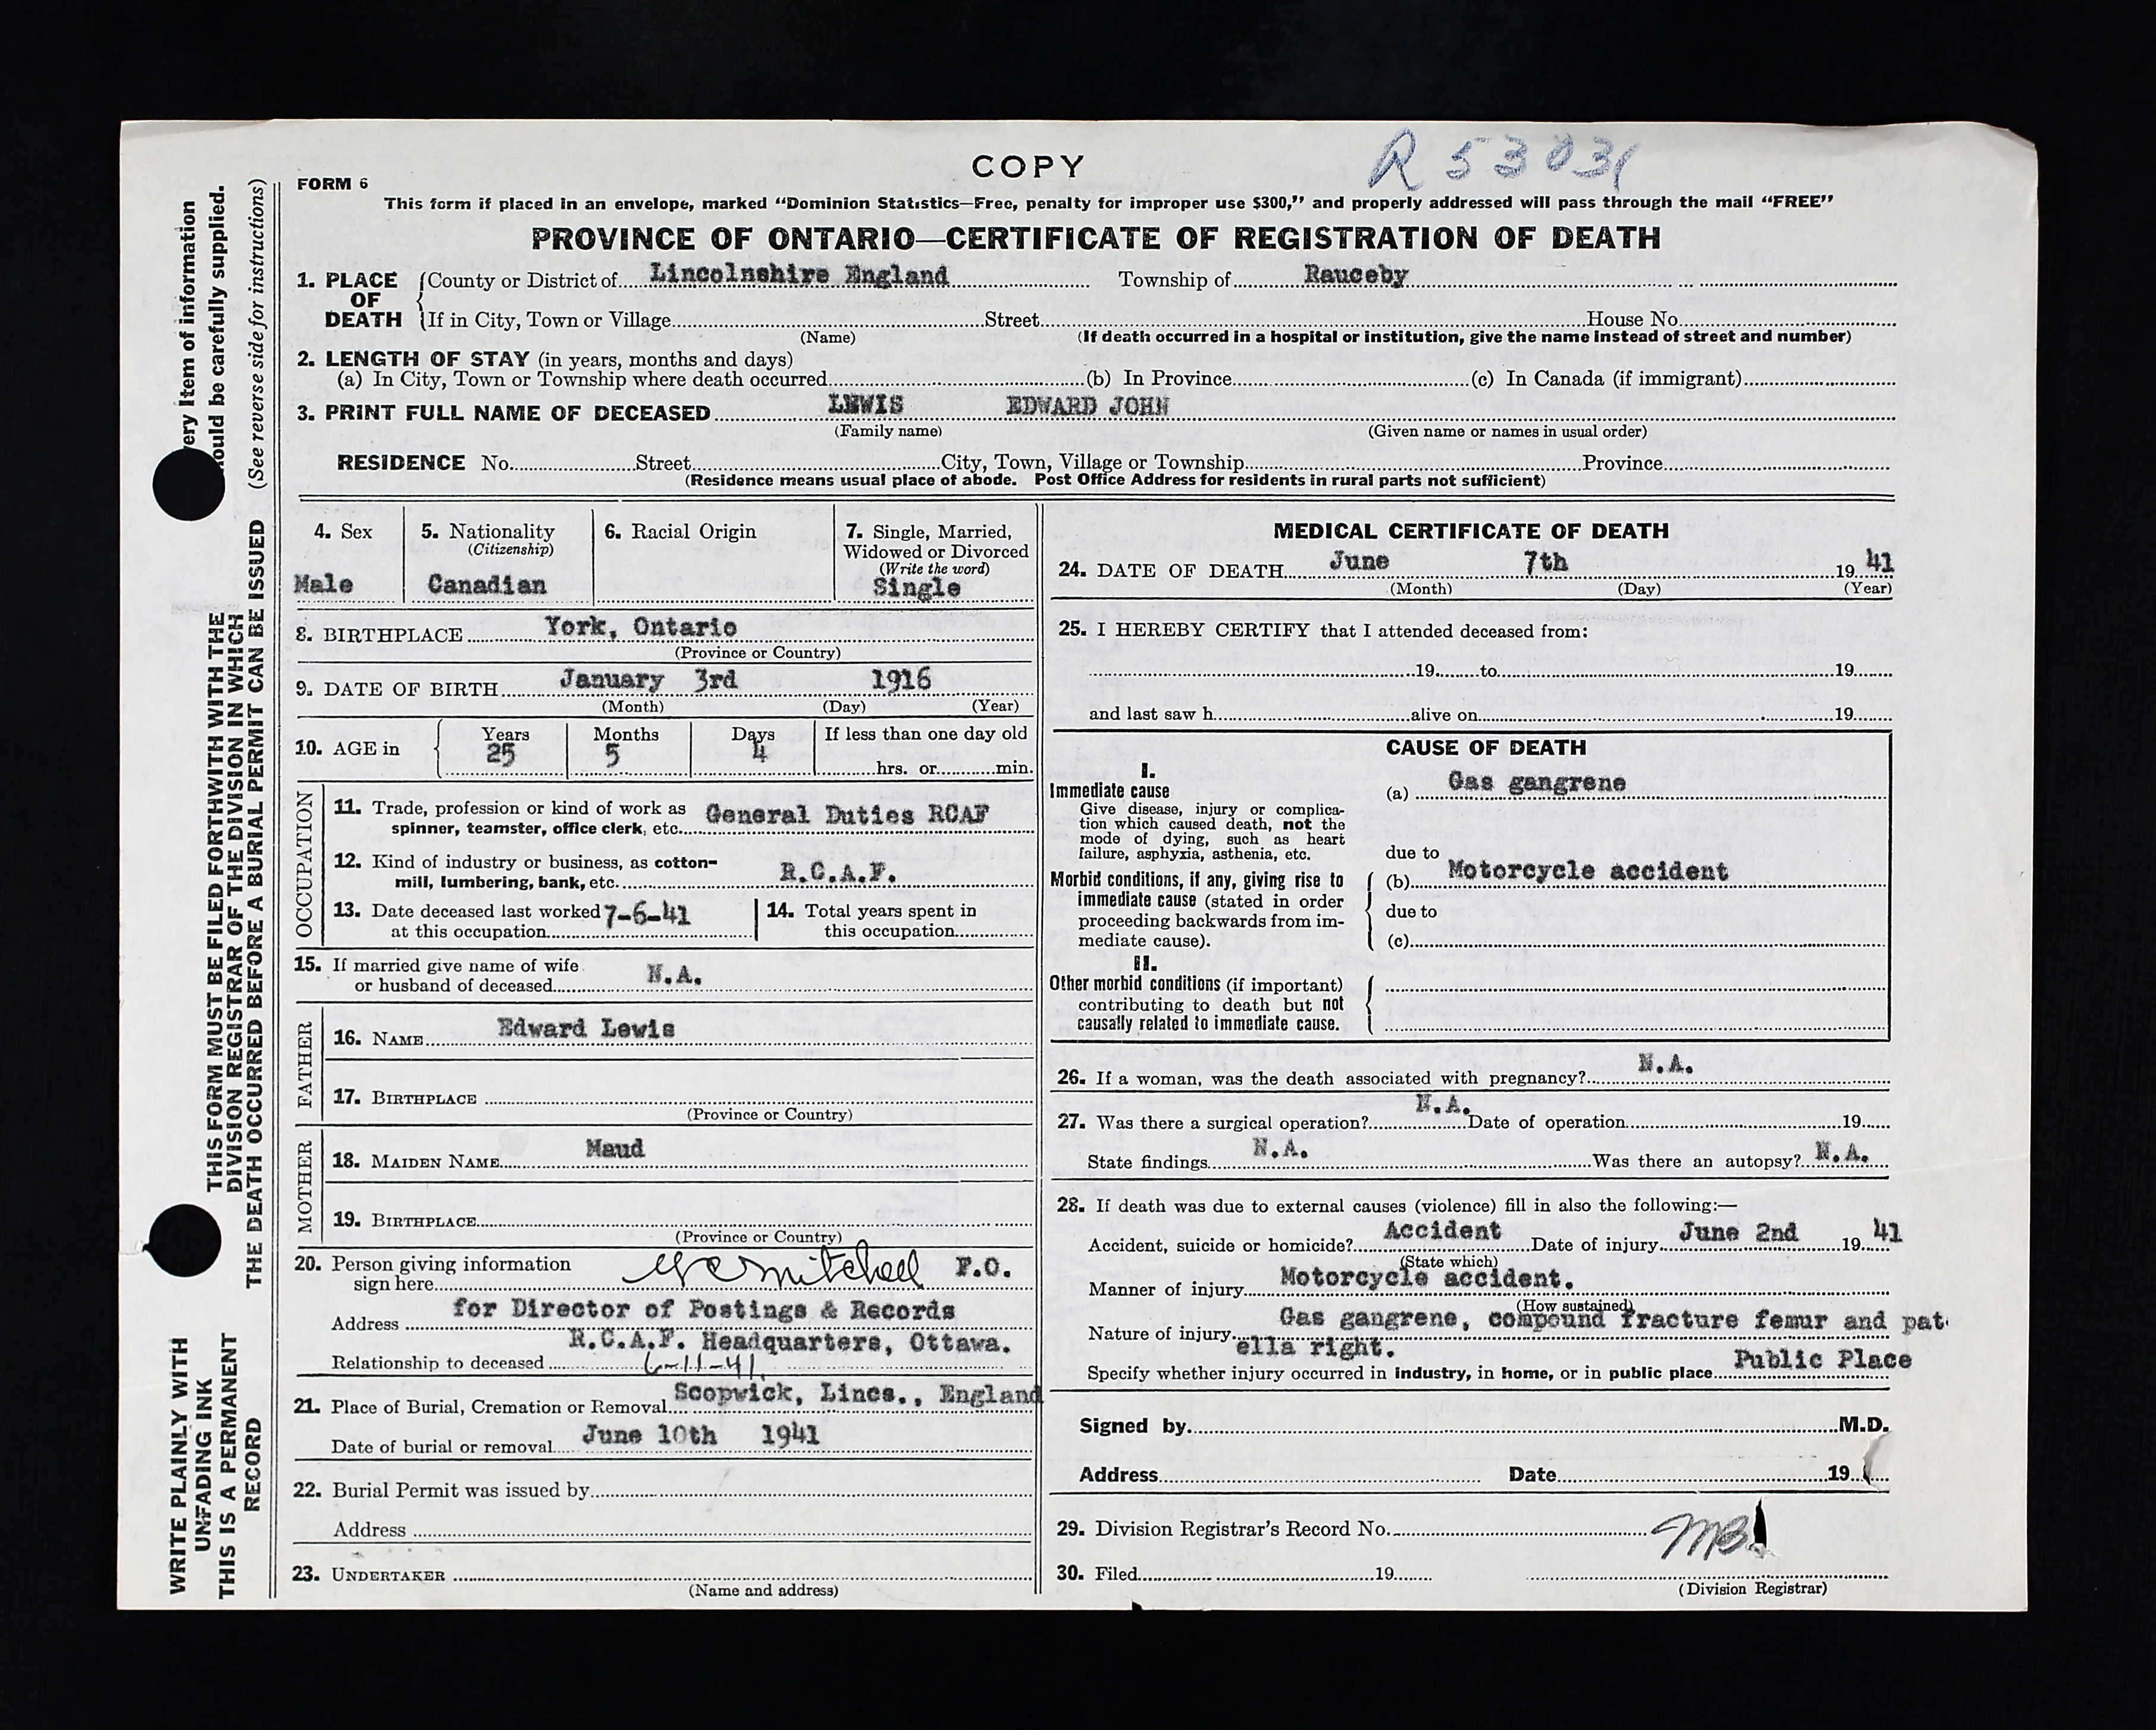 COPY
R 53031
FORM 6
This form if placed in an envelope, marked “Dominion Statistics—Free, penalty for improper use $300,” and properly addressed will pass through the mail “FREE”
PROVINCE OF ONTARIO—CERTIFICATE OF REGISTRATION OF DEATH
1. PLACE OF DEATH
County or District of Lincolnshire England Township of Rauceby
If in City, Town or Village Street House No.
(Name) (If death occurred in a hospital or institution, give the name instead of street and number)
2. LENGTH OF STAY (in years, months and days)
(a) In City, Town or Township where death occurred (b) In Province (c) In Canada (if immigrant)
3. PRINT FULL NAME OF DECEASED LEWIS EDWARD JOHN
(Family name) (Given name or names in usual order)
RESIDENCE No. Street City, Town, Village or Township Province
(Residence means usual place of abode. Post Office Address for residents in rural parts not sufficient)
4. Sex
Male
5. Nationality
(Citizenship)
Canadian
6. Racial Origin
7. Single, Married,
Widowed or Divorced
(Write the word)
Single
8. BIRTHPLACE York, Ontario
(Province or Country)
9. DATE OF BIRTH January 3rd 1916
(Month) (Day) (Year)
10. AGE in
Years Months Days If less than one day old
25 5 4
hrs. or min.
OCCUPATION
11. Trade, profession or kind of work as
spinner, teamster, office clerk, etc. General Duties RCAF
12. Kind of industry or business, as cotton-
mill, lumbering, bank, etc. R.C.A.F.
13. Date deceased last worked 7-6-41
at this occupation
14. Total years spent in
this occupation
15. If married give name of wife
or husband of deceased N.A.
FATHER
16. NAME Edward Lewis
17. BIRTHPLACE
(Province or Country)
MOTHER
18. MAIDEN NAME Maud
19. BIRTHPLACE
(Province or Country)
20. Person giving information
sign here Mitchell F.O.
for Director of Postings & Records
Address
R.C.A.F. Headquarters, Ottawa.
Relationship to deceased 6-11-41
21. Place of Burial, Cremation or Removal Scopwick, Lincs., England
Date of burial or removal June 10th 1941
22. Burial Permit was issued by
Address
23. UNDERTAKER
(Name and address)
MEDICAL CERTIFICATE OF DEATH
24. DATE OF DEATH June 7th 19 41
(Month) (Day) (Year)
25. I HEREBY CERTIFY that I attended deceased from:
19 to 19
and last saw h alive on 19
CAUSE OF DEATH
I.
Immediate cause
Give disease, injury or complica-
tion which caused death, not the
mode of dying, such as heart
failure, asphyxia, asthenia, etc.
(a) Gas gangrene
due to
Morbid conditions, if any, giving rise to
immediate cause (stated in order
proceeding backwards from im-
mediate cause).
(b) Motorcycle accident
due to
(c)
II.
Other morbid conditions (if important)
contributing to death but not
causally related to immediate cause.
26. If a woman, was the death associated with pregnancy? N.A.
27. Was there a surgical operation? N.A. Date of operation 19
State findings N.A. Was there an autopsy? N.A.
28. If death was due to external causes (violence) fill in also the following:—
Accident, suicide or homicide? Accident Date of injury June 2nd 19 41
(State which)
Manner of injury Motorcycle accident.
(How sustained)
Nature of injury Gas gangrene, compound fracture femur and pat
ella right.
Specify whether injury occurred in industry, in home, or in public place Public Place
Signed by M.D.
Address Date 19
29. Division Registrar's Record No.
30. Filed 19
(Division Registrar)
ery Item of information
ould be carefully supplied.
(See reverse side for instructions)
THIS FORM MUST BE FILED FORTHWITH WITH THE
DIVISION REGISTRAR OF THE DIVISION IN WHICH
THE DEATH OCCURRED BEFORE A BURIAL PERMIT CAN BE ISSUED
WRITE PLAINLY WITH
UNFADING INK
THIS IS A PERMANENT
RECORD